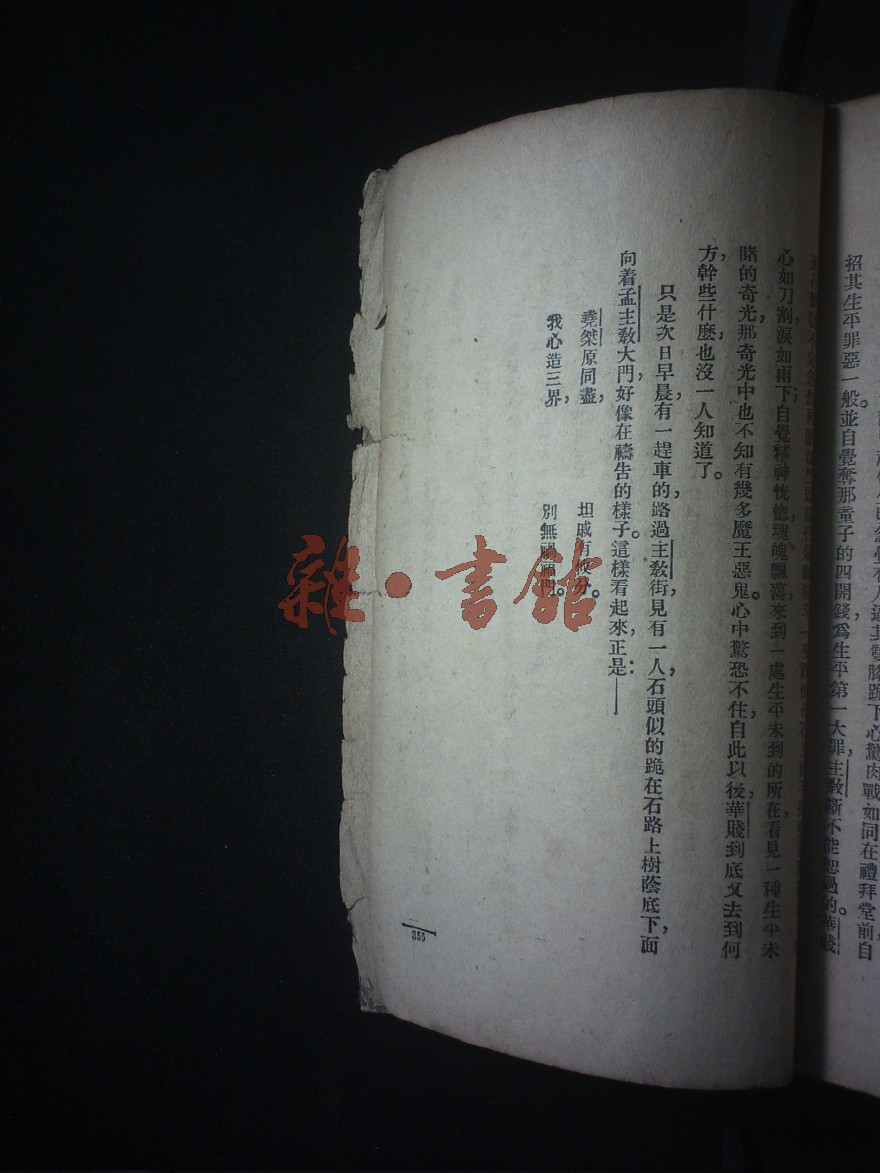 招其生平罪惡一般。並自覺奪那童子的四開錢，爲生平第一大罪，主教斷不能恕過的。華賤
心如刀割，淚如雨下，自覺精神恍惚，魂魄飄蕩，來到一處生平未到的所在，看見一種生平未
睹的奇光，那奇光中也不知有幾多魔王惡鬼。心中驚恐不住，自此以後，華賤到底又去到何
方，幹些什麼，也沒一人知道了。
只是次日早晨，有一趕車的，路過主教街，見有一人石頭似的跪在石路上樹蔭底下，面
向着孟主教大門，好像在禱告的樣子。這樣看起來，正是：——
堯桀原同盡，坦戚 分。
我心造三界，別無禍福門。
355
雜·書館